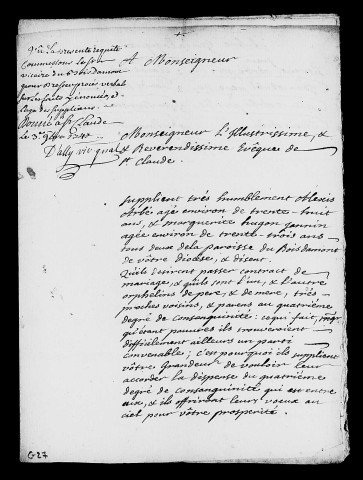 Vû la presente requête
Commettons le Sr
vicaire du Boisdamont
pour dresser procés verbal
sur les faits y énoncés, et
l'age des supplians.
Donné à St Claude
le 3e
Dally vic. gnal
A Monseigneur
Monseigneur L'Illustrissime, &
Reverendissime Evêque de
St. Claude.
Supplient trés humblement Alexis
Arbé agé environ de trente-huit
ans, & marguerite hugon jannin
agée environ de trente-trois ans
tous deux de la paroisse du Boisdamont
de vôtre diocése, & disent.
Quils desirent passer contract de
mariage, & quils sont l'un, & l'autre
orphelins de pere, & de mere, trés
proches voisins, & parens au quatriéme
degré de consanguinité: ce qui fait,
qu'étant pauvres ils trouveroient
difficilement ailleurs un parti
convenable; c'est pourquoi ils supplient
vôtre Grandeur de vouloir leur
accorder la dispense du quatriéme
degré de consanguinité qui est entre
eux, & ils offriront leurs voeux au
ciel pour vôtre prosperité.
G27